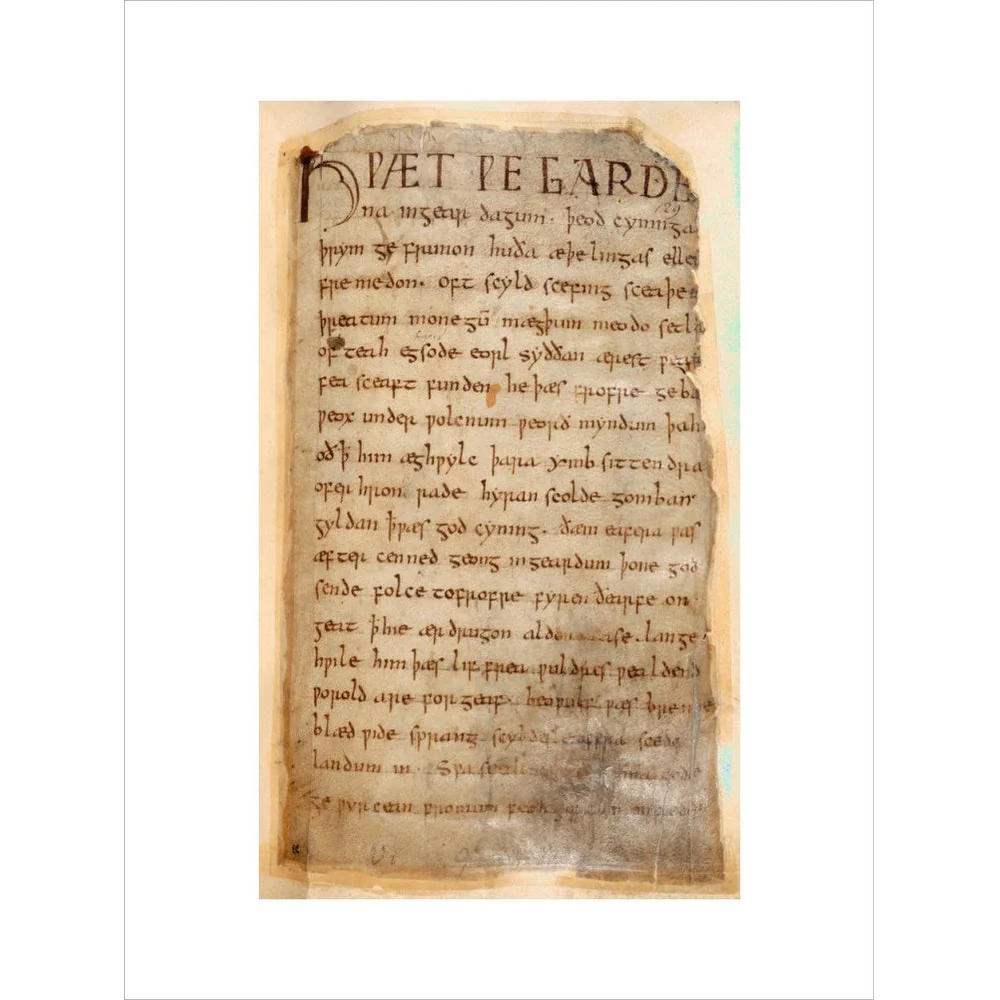 HǷÆT ǷE GARDE
na ingear dagum. þeod cyninga
þrym ge frunon huða æþelingas ellen
fremedon. oft scyld scefing sceaþe
þreatum monegū mægþum meodo setla
of teah egsode eorl syððan ærest ƿearð
fea sceaft funden he þæs frofre geba
ƿeox under ƿolcnum ƿeorð myndum þah
oð ꝥ him æghƿylc þara ymb sittendra
ofer hron rade hyran scolde gomban
gyldan ꝥ ƿæs god cyning. ðæm eafera ƿæs
æfter cenned geong ingeardum þone god
sende folce tofrofre fyren ðearfe on
geat ꝥ hie ær drugon aldor ase. lange
hƿile him þæs lif frea ƿuldres ƿealdend
ƿorold are for geaf. beoƿulf ƿæs breme
blæd ƿide sprang scyldes eafera scede
landum in. Sƿa sceal
ge ƿyrcean fromum feoh giftum